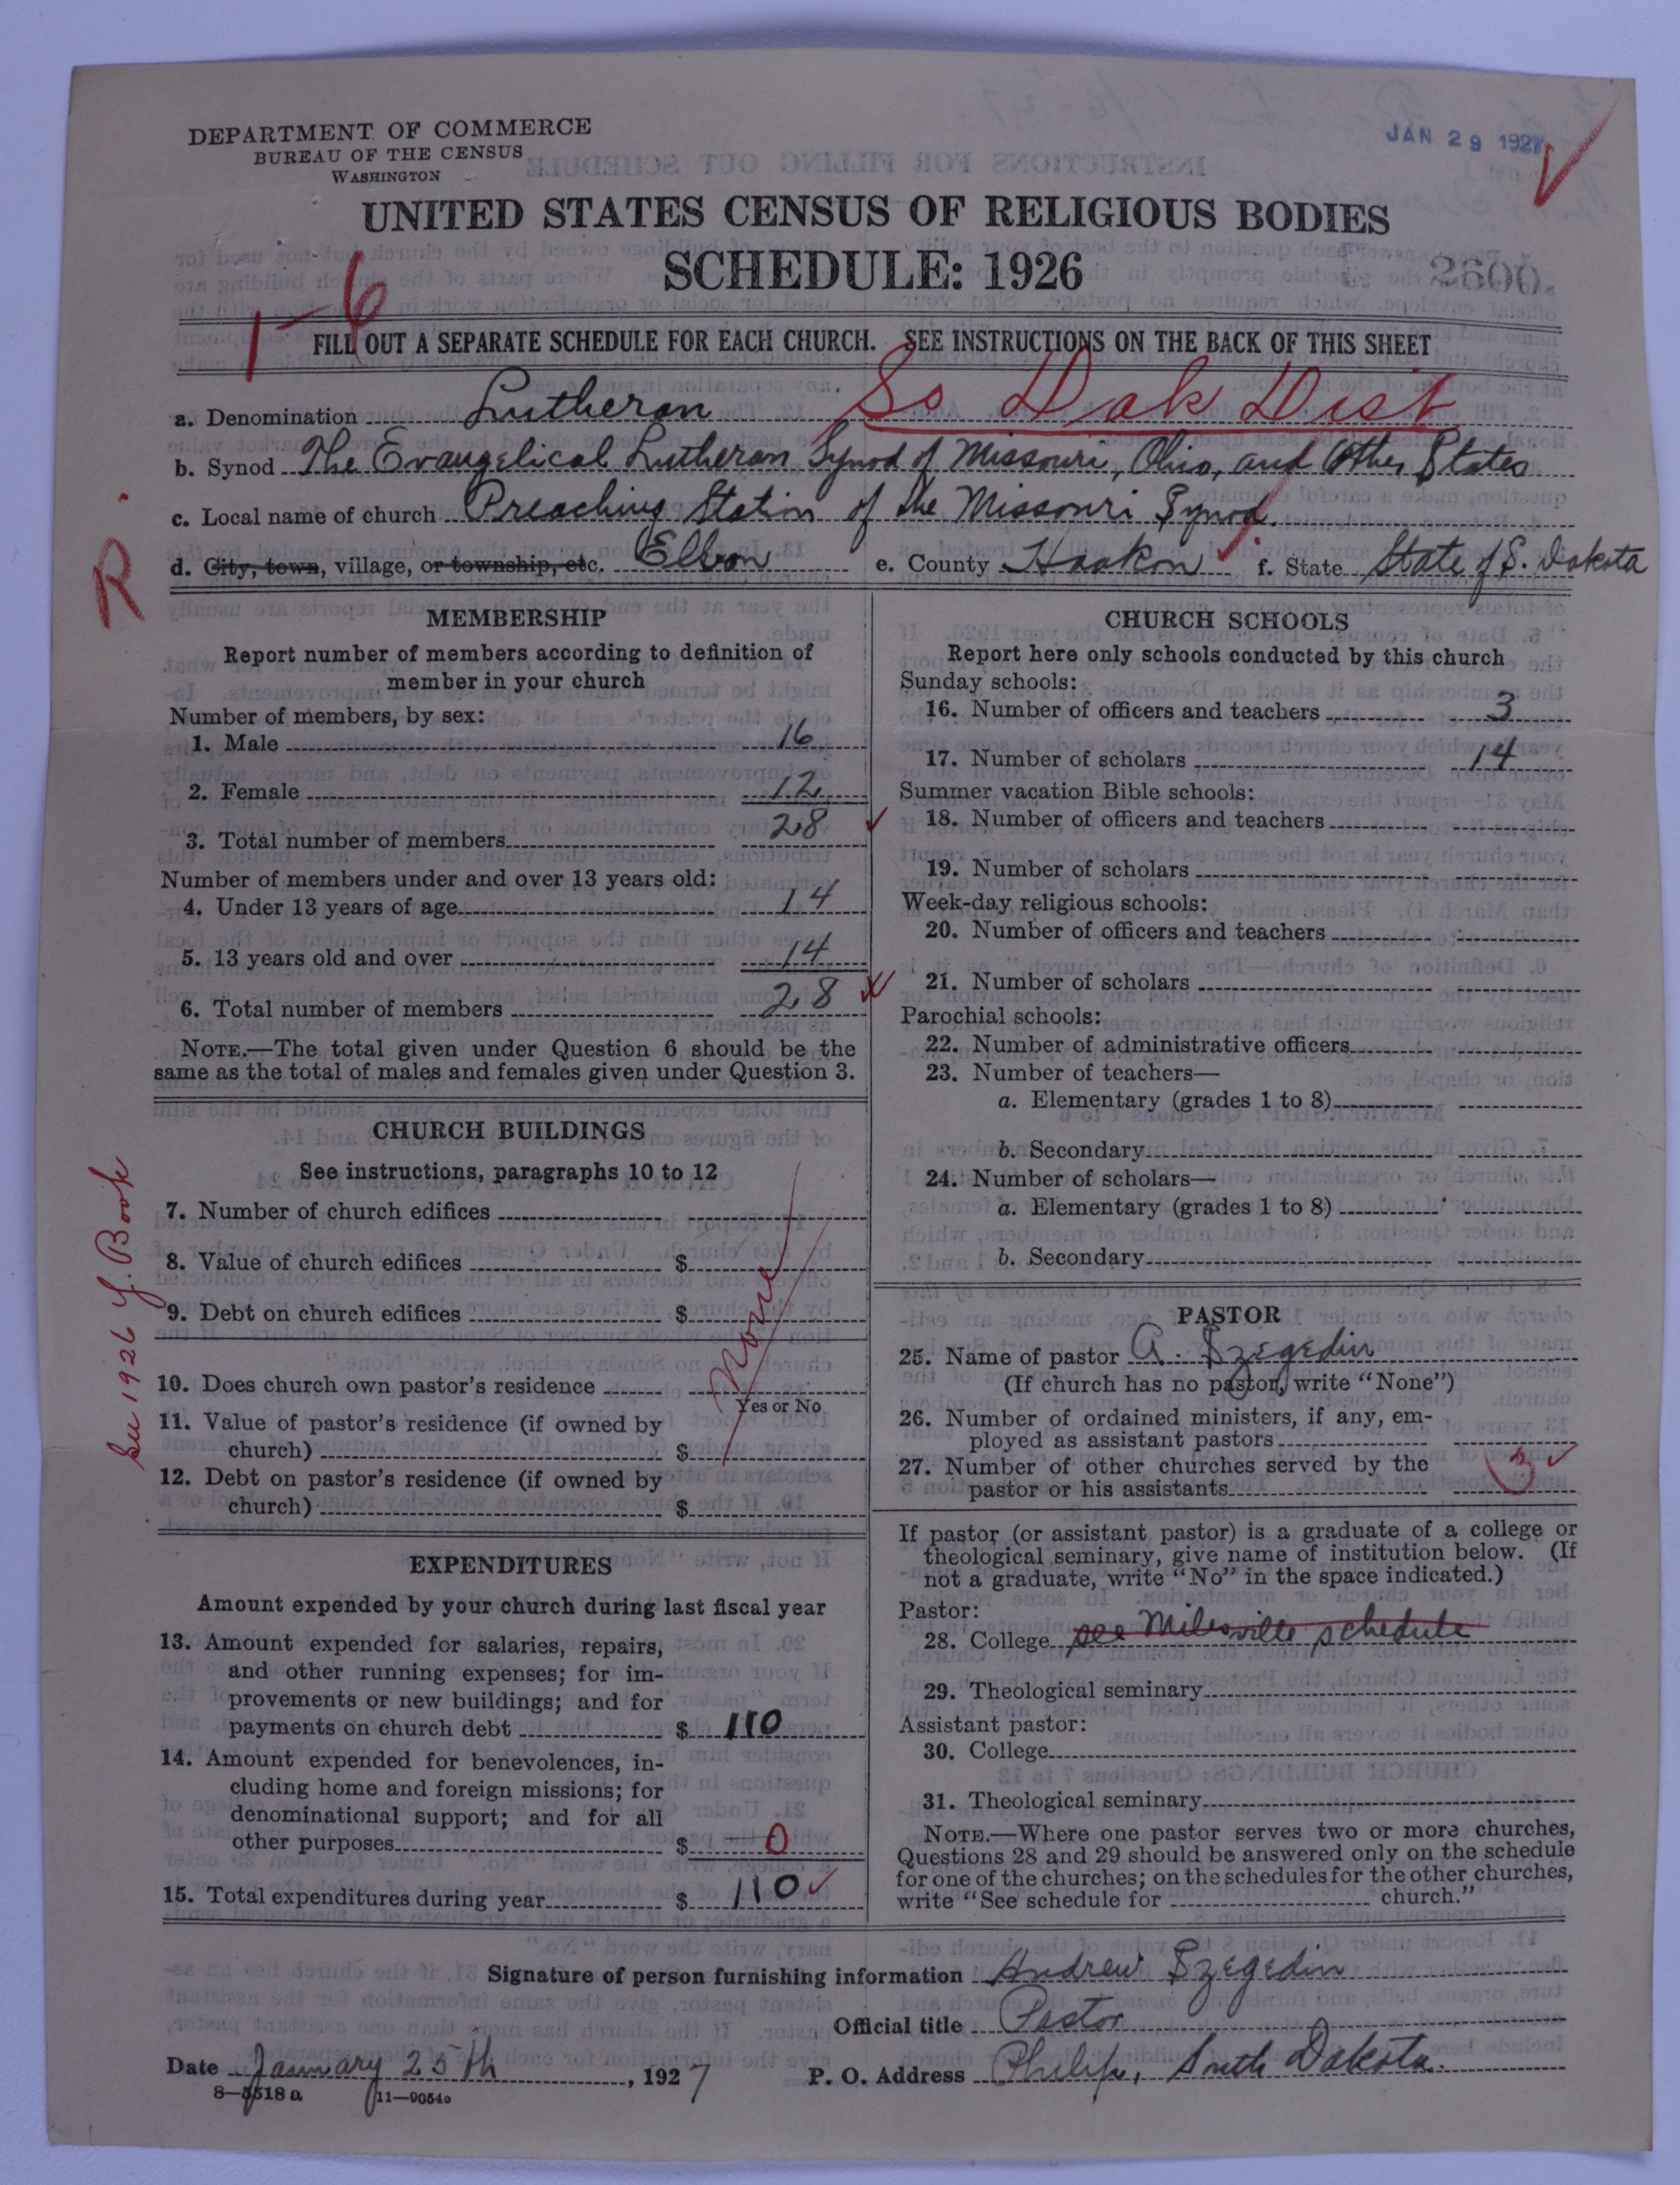 DEPARTMENT OF COMMERCE
BUREAU OF THE CENSUS
WASHINGTON
JAN 29 1927
UNITED STATES CENSUS OF RELIGIOUS BODIES
SCHEDULE: 1926
2600.
1-6
FILL OUT A SEPARATE SCHEDULE FOR EACH CHURCH. SEE INSTRUCTIONS ON THE BACK OF THIS SHEET
a. Denomination Lutheran So Dak Dist
b. Synod The Evangelical Lutheran Synod of Missouri, Ohio, and Other States
c. Local name of church Preaching Station of the Missouri Synod.
R.
d. City, town, village, or township, etc. Elbon e. County Haakon f. State State of S. Dakota
MEMBERSHIP
Report number of members according to definition of
member in your church
Number of members, by sex:
1. Male 16
2. Female 12
3. Total number of members 28
Number of members under and over 13 years old:
4. Under 13 years of age 14
5. 13 years old and over 14
6. Total number of members 28
NOTE.—The total given under Question 6 should be the
same as the total of males and females given under Question 3.
CHURCH BUILDINGS
See instructions, paragraphs 10 to 12
7. Number of church edifices
8. Value of church edifices $
9. Debt on church edifices $
None
10. Does church own pastor's residence
Yes or No
11. Value of pastor's residence (if owned by
church) $
12. Debt on pastor's residence (if owned by
church) $
See 1926 Y. Book
EXPENDITURES
Amount expended by your church during last fiscal year
13. Amount expended for salaries, repairs,
and other running expenses; for im-
provements or new buildings; and for
payments on church debt $ 110
14. Amount expended for benevolences, in-
cluding home and foreign missions; for
denominational support; and for all
other purposes $ 0
15. Total expenditures during year $ 110
CHURCH SCHOOLS
Report here only schools conducted by this church
Sunday schools:
16. Number of officers and teachers 3
17. Number of scholars 14
Summer vacation Bible schools:
18. Number of officers and teachers
19. Number of scholars
Week-day religious schools:
20. Number of officers and teachers
21. Number of scholars
Parochial schools:
22. Number of administrative officers
23. Number of teachers—
a. Elementary (grades 1 to 8)
b. Secondary
24. Number of scholars—
a. Elementary (grades 1 to 8)
b. Secondary
PASTOR
25. Name of pastor A. Szegedin
(If church has no pastor, write "None")
26. Number of ordained ministers, if any, em-
ployed as assistant pastors
27. Number of other churches served by the
pastor or his assistants 3
If pastor (or assistant pastor) is a graduate of a college or
theological seminary, give name of institution below. (If
not a graduate, write "No" in the space indicated.)
Pastor:
28. College see Milesville schedule
29. Theological seminary
Assistant pastor:
30. College
31. Theological seminary
NOTE.—Where one pastor serves two or more churches,
Questions 28 and 29 should be answered only on the schedule
for one of the churches; on the schedules for the other churches,
write "See schedule for church."
Signature of person furnishing information Andrew Szegedin
Official title Pastor
Date January 25th, 1927 P. O. Address Philip, South Dakota.
8—5518 a 11—9054o